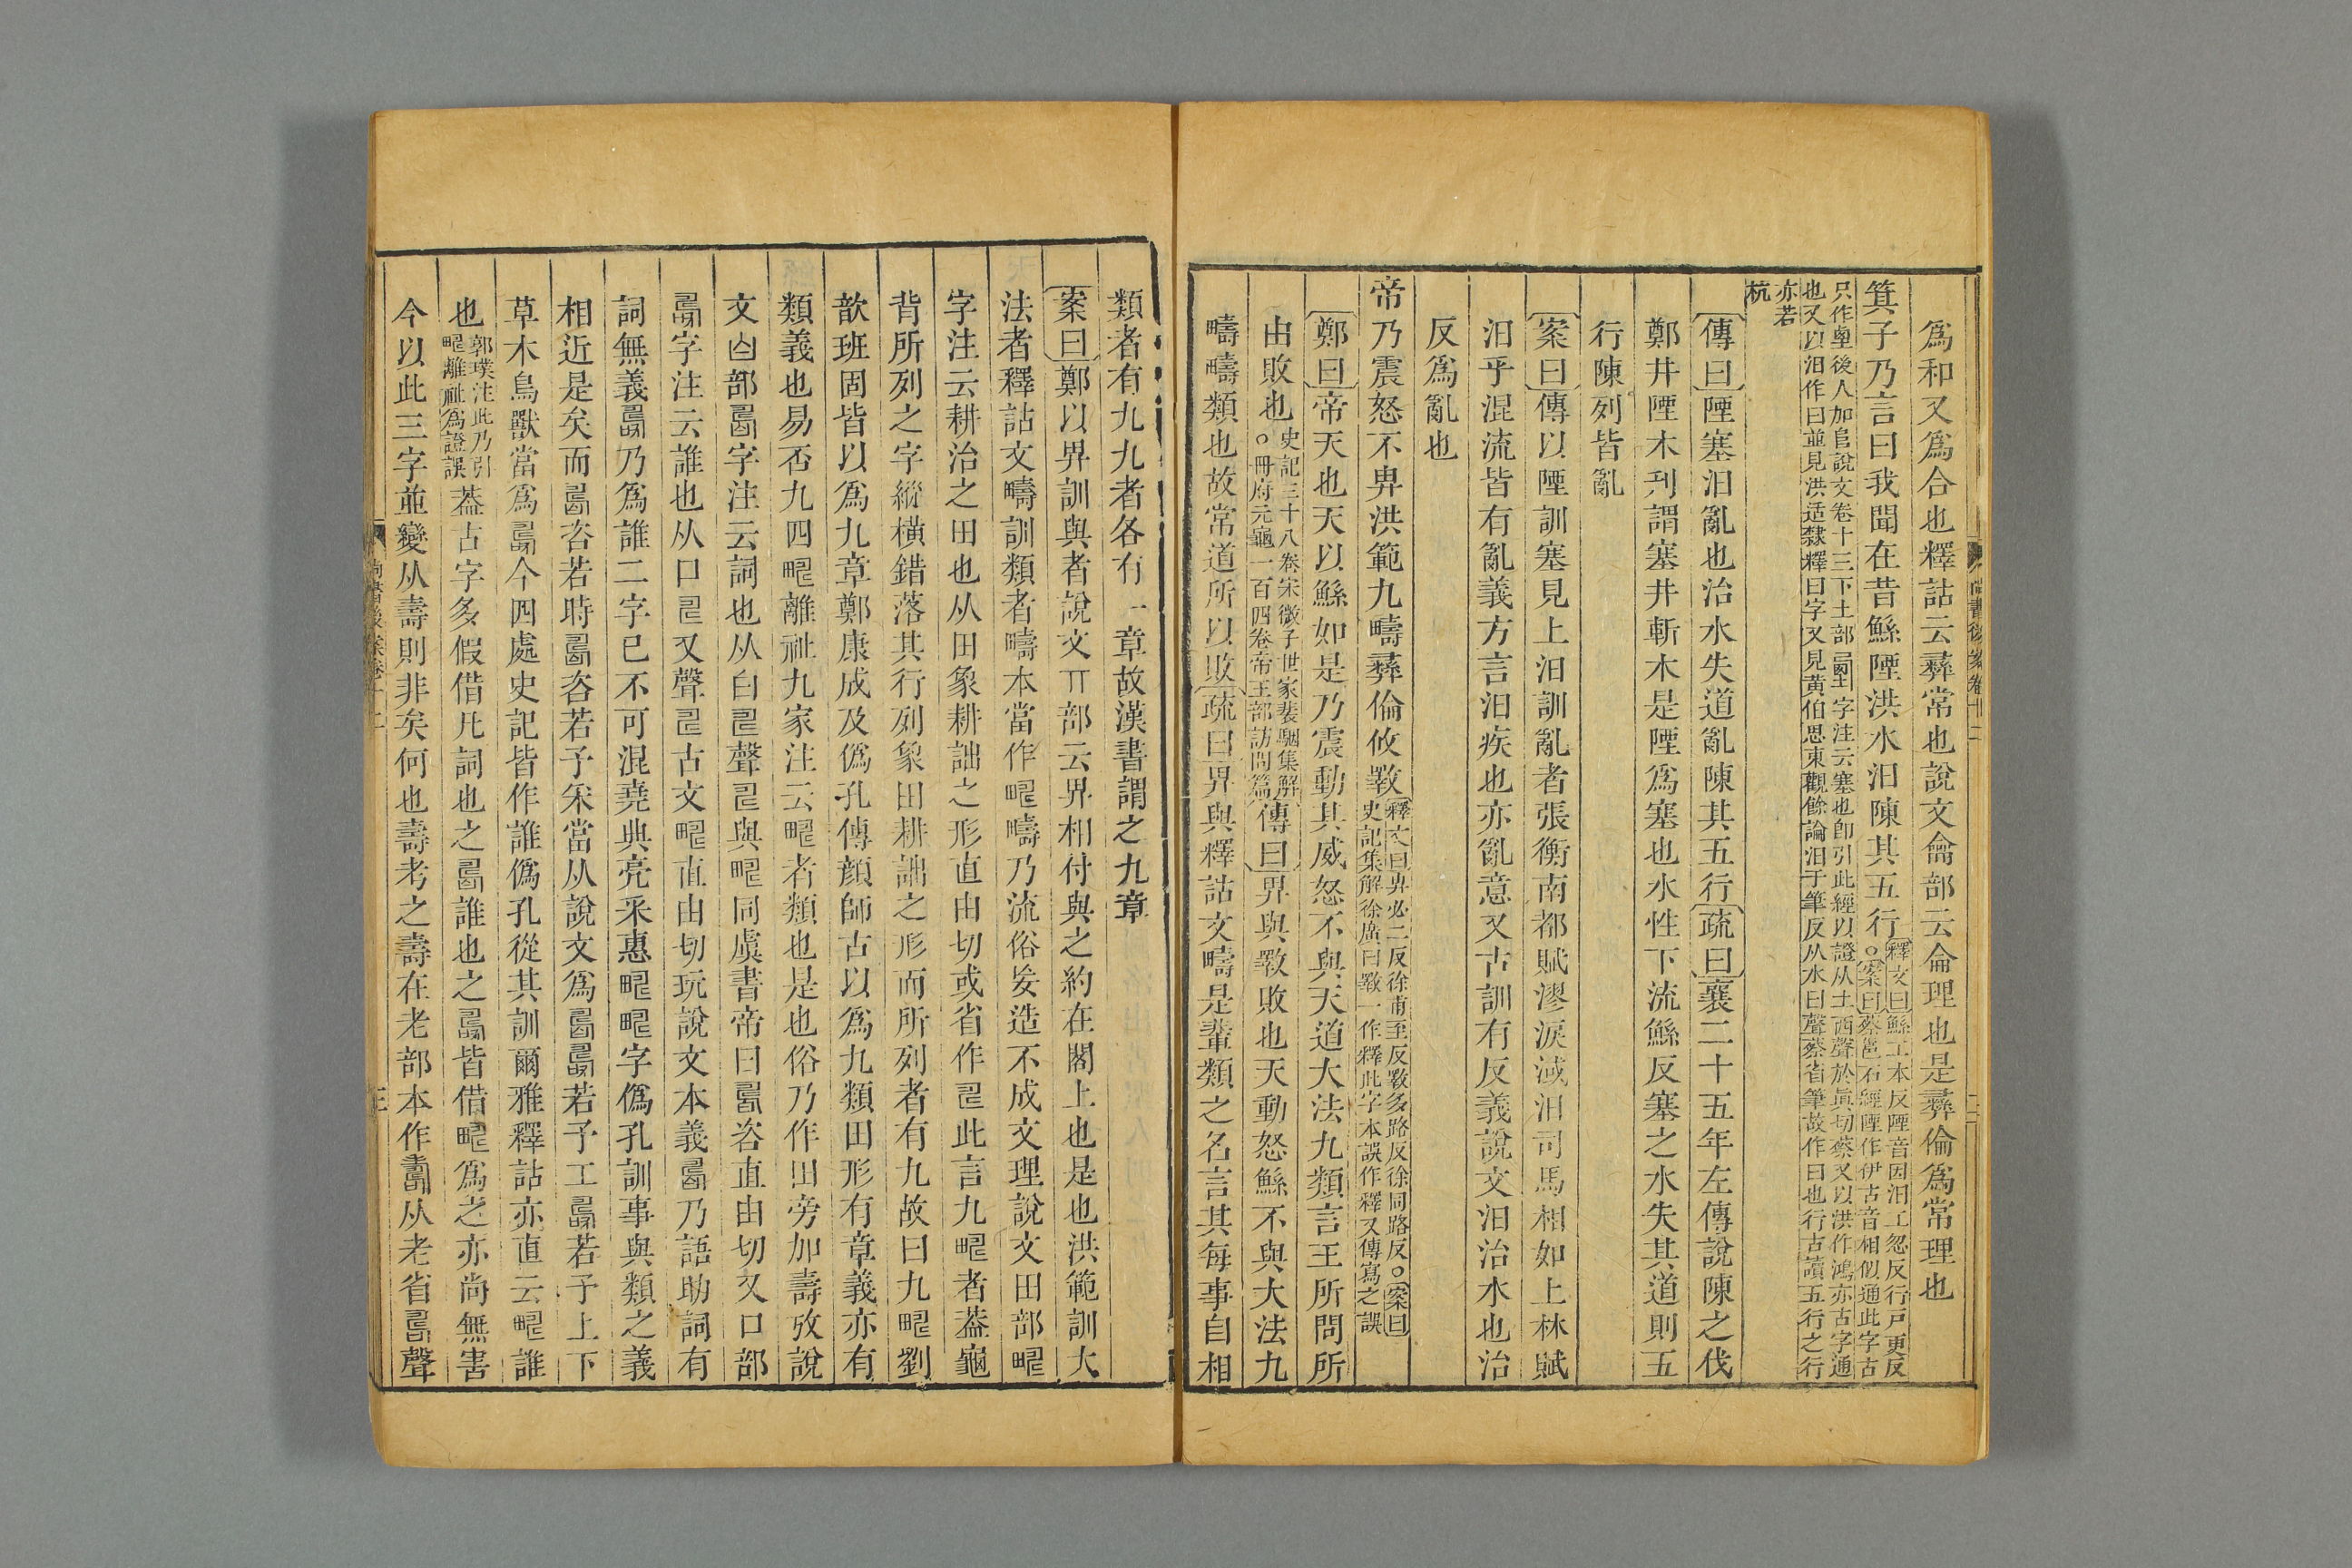 爲和又爲合也釋詁云彝常也說文侖部云侖理也是彝倫爲常理也
箕子乃言曰我聞在昔鯀陻洪水汩陳其五行
釋文曰鯀工本反陻音因汩工忽反行戶更反
○案曰蔡邕石經陻作伊古音相似通此字古
只作垔後人加𨸏說文卷十三下土部垔字注云塞也卽引此經以證从土西聲於眞切蔡又以洪作鴻亦古字通
也又以汩作曰並見洪适隸釋曰字又見黃伯思東觀餘論汩于筆反从水曰聲蔡省筆故作曰也行古讀五行之行
亦若
杭
傳曰陻塞汩亂也治水失道亂陳其五行疏曰襄二十五年左傳說陳之伐
鄭井陻木刋謂塞井斬木是陻爲塞也水性下流鯀反塞之水失其道則五
行陳列皆亂
案曰傳以陻訓塞見上汩訓亂者張衡南都賦漻淚淢汩司馬相如上林賦
汩乎混流皆有亂義方言汩疾也亦亂意又古訓有反義說文汩治水也治
反爲亂也
帝乃震怒不畀洪範九疇彝倫攸斁
釋文曰畀必二反徐甫至反斁多路反徐同路反○案曰
史記集解徐廣曰斁一作釋此字本誤作釋又傳寫之誤
鄭曰帝天也天以鯀如是乃震動其威怒不與天道大法九類言王所問所
由敗也
史記三十八卷宋微子世家裴駰集解
○冊府元龜一百四卷帝王部訪問篇
傳曰畀與斁敗也天動怒鯀不與大法九
疇疇類也故常道所以敗疏曰畀與釋詁文疇是輩類之名言其每事自相
類者有九九者各有一章故漢書謂之九章
案曰鄭以畀訓與者說文丌部云畀相付與之約在閣上也是也洪範訓大
法者釋詁文疇訓類者疇本當作𤲮疇乃流俗妄造不成文理說文田部𤲮
字注云耕治之田也从田象耕詘之形直由切或省作𠃬此言九𤲮者葢龜
背所列之字縱橫錯落其行列象田耕詘之形而所列者有九故曰九𤲮劉
歆班固皆以爲九章鄭康成及僞孔傳顔師古以爲九類田形有章義亦有
類義也易否九四𤲮離祉九家注云𤲮者類也是也俗乃作田旁加壽攷說
文白部𠷎字注云詞也从白𠃬聲𠃬與𤲮同虞書帝曰𠷎咨直由切又口部
𠷎字注云誰也从口𠃬又聲𠃬古文𤲮直由切玩說文本義𠷎乃語助詞有
詞無義𠷎乃爲誰二字已不可混堯典亮采惠𤲮𤲮字僞孔訓事與類之義
相近是矣而𠷎咨若時𠷎咨若予采當从說文爲𠷎𠷎若予工𠷎若予上下
草木鳥獸當爲𠷎今四處史記皆作誰僞孔從其訓爾雅釋詁亦直云𤲮誰
也
郭璞注此乃引
𤲮離祉爲證誤
葢古字多假借凡詞也之𠷎誰也之𠷎皆借𤲮爲之亦尚無害
今以此三字並變从壽則非矣何也壽考之壽在老部本作𦓃从老省𠷎聲